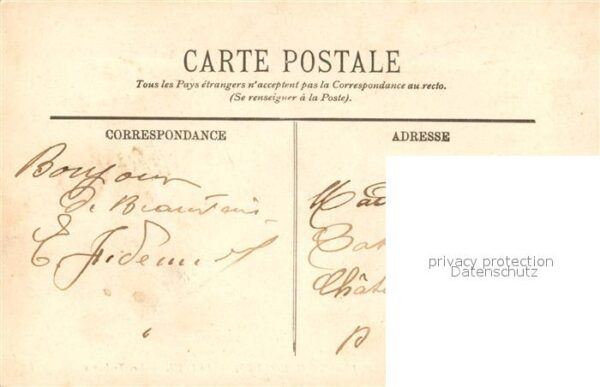 CARTE POSTALE
Tous les Pays étrangers n'acceptent pas la Correspondance au recto.
(Se renseigner à la Poste).
CORRESPONDANCE
ADRESSE
Bonjour
de
E
Mad
Chât
privacy protection
Datenschutz